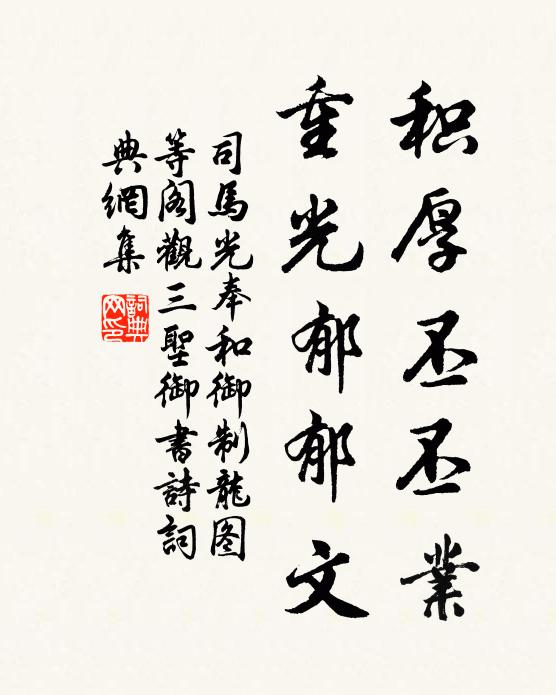 积厚丕丕業
重光郁郁文
司馬光奉和御制龍图
等阁觀三聖御書詩詞
典網集
詞典网印